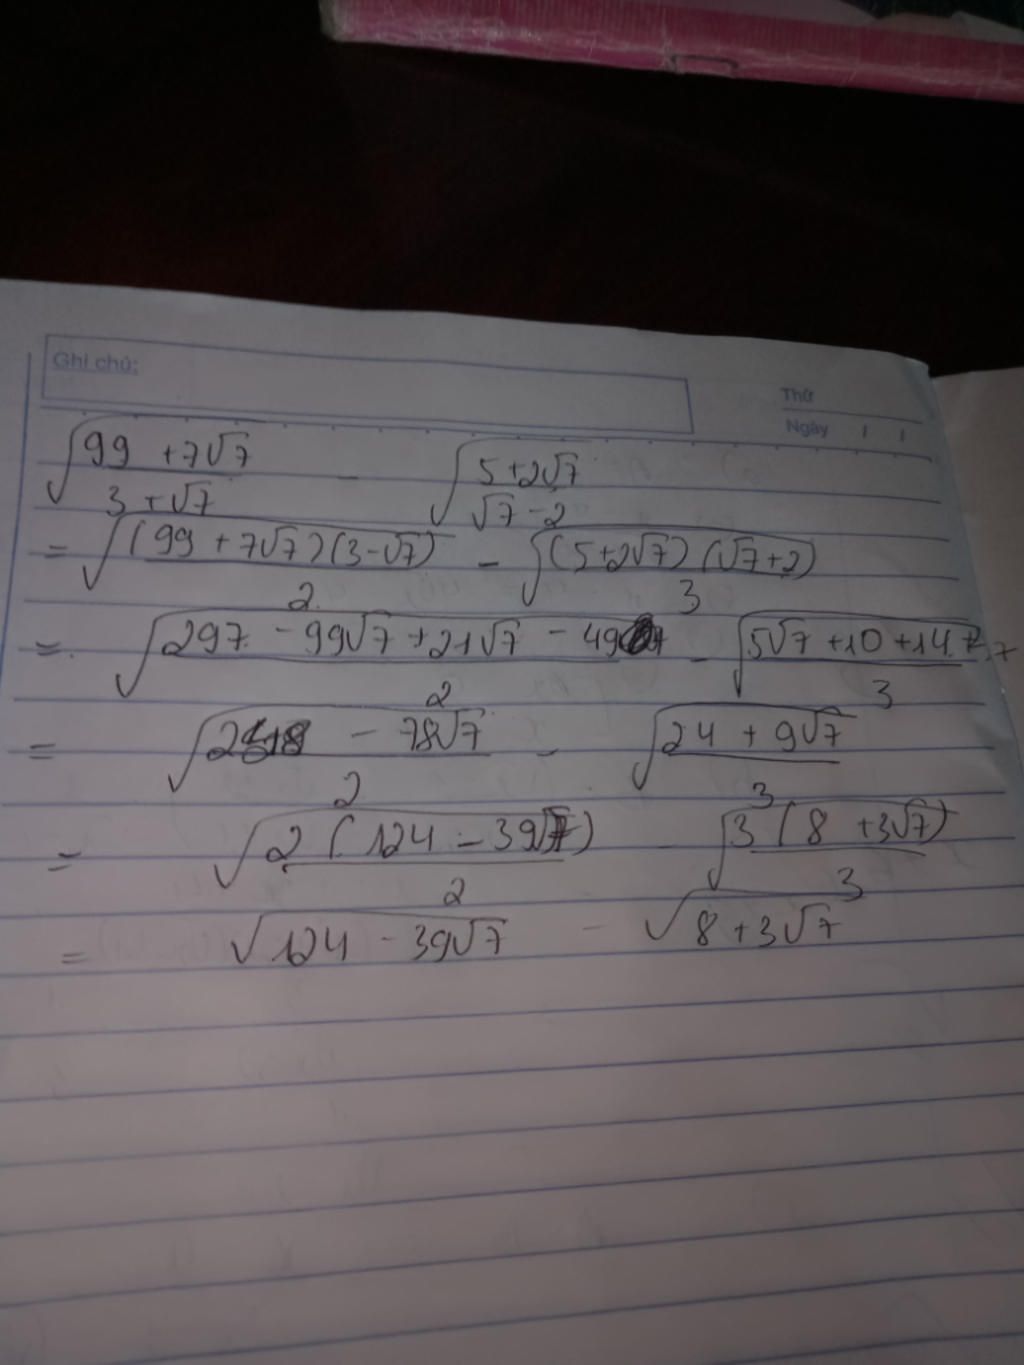 Ghi chú:
Thứ
Ngày / /
√((99 + 7√7)/(3 + √7)) - √((5 + 2√7)/(√7 - 2))
= √(((99 + 7√7)(3 - √7))/2) - √(((5 + 2√7)(√7 + 2))/3)
= √((297 - 99√7 + 21√7 - 49)/2) - √((5√7 + 10 + 14 + 4√7)/3)
= √((248 - 78√7)/2) - √((24 + 9√7)/3)
= √((2(124 - 39√7))/2) - √((3(8 + 3√7))/3)
= √(124 - 39√7) - √(8 + 3√7)